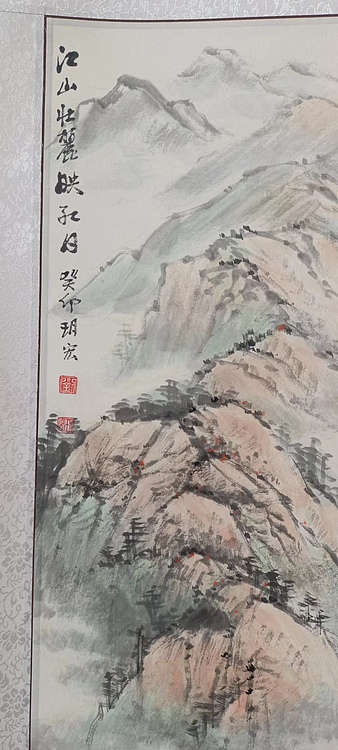 江山壮麗映红日癸卯玥宏